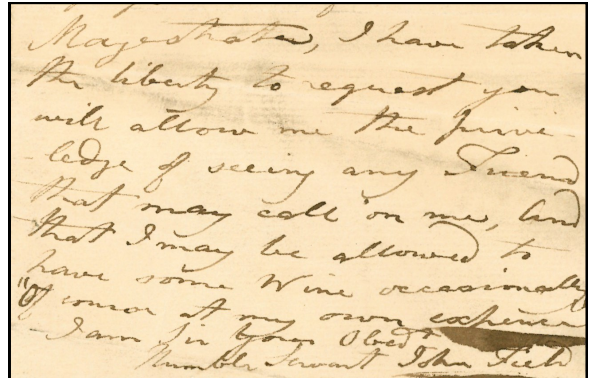 Magestrates, I have taken
the liberty to request you
will allow me the privi-
-ledge of seeing any Friend
that may call on me, and
that I may be allowed to
have some Wine occasionally
"Of course at my own expence
- I am Sir Your Obedt
Humble Servant John Field